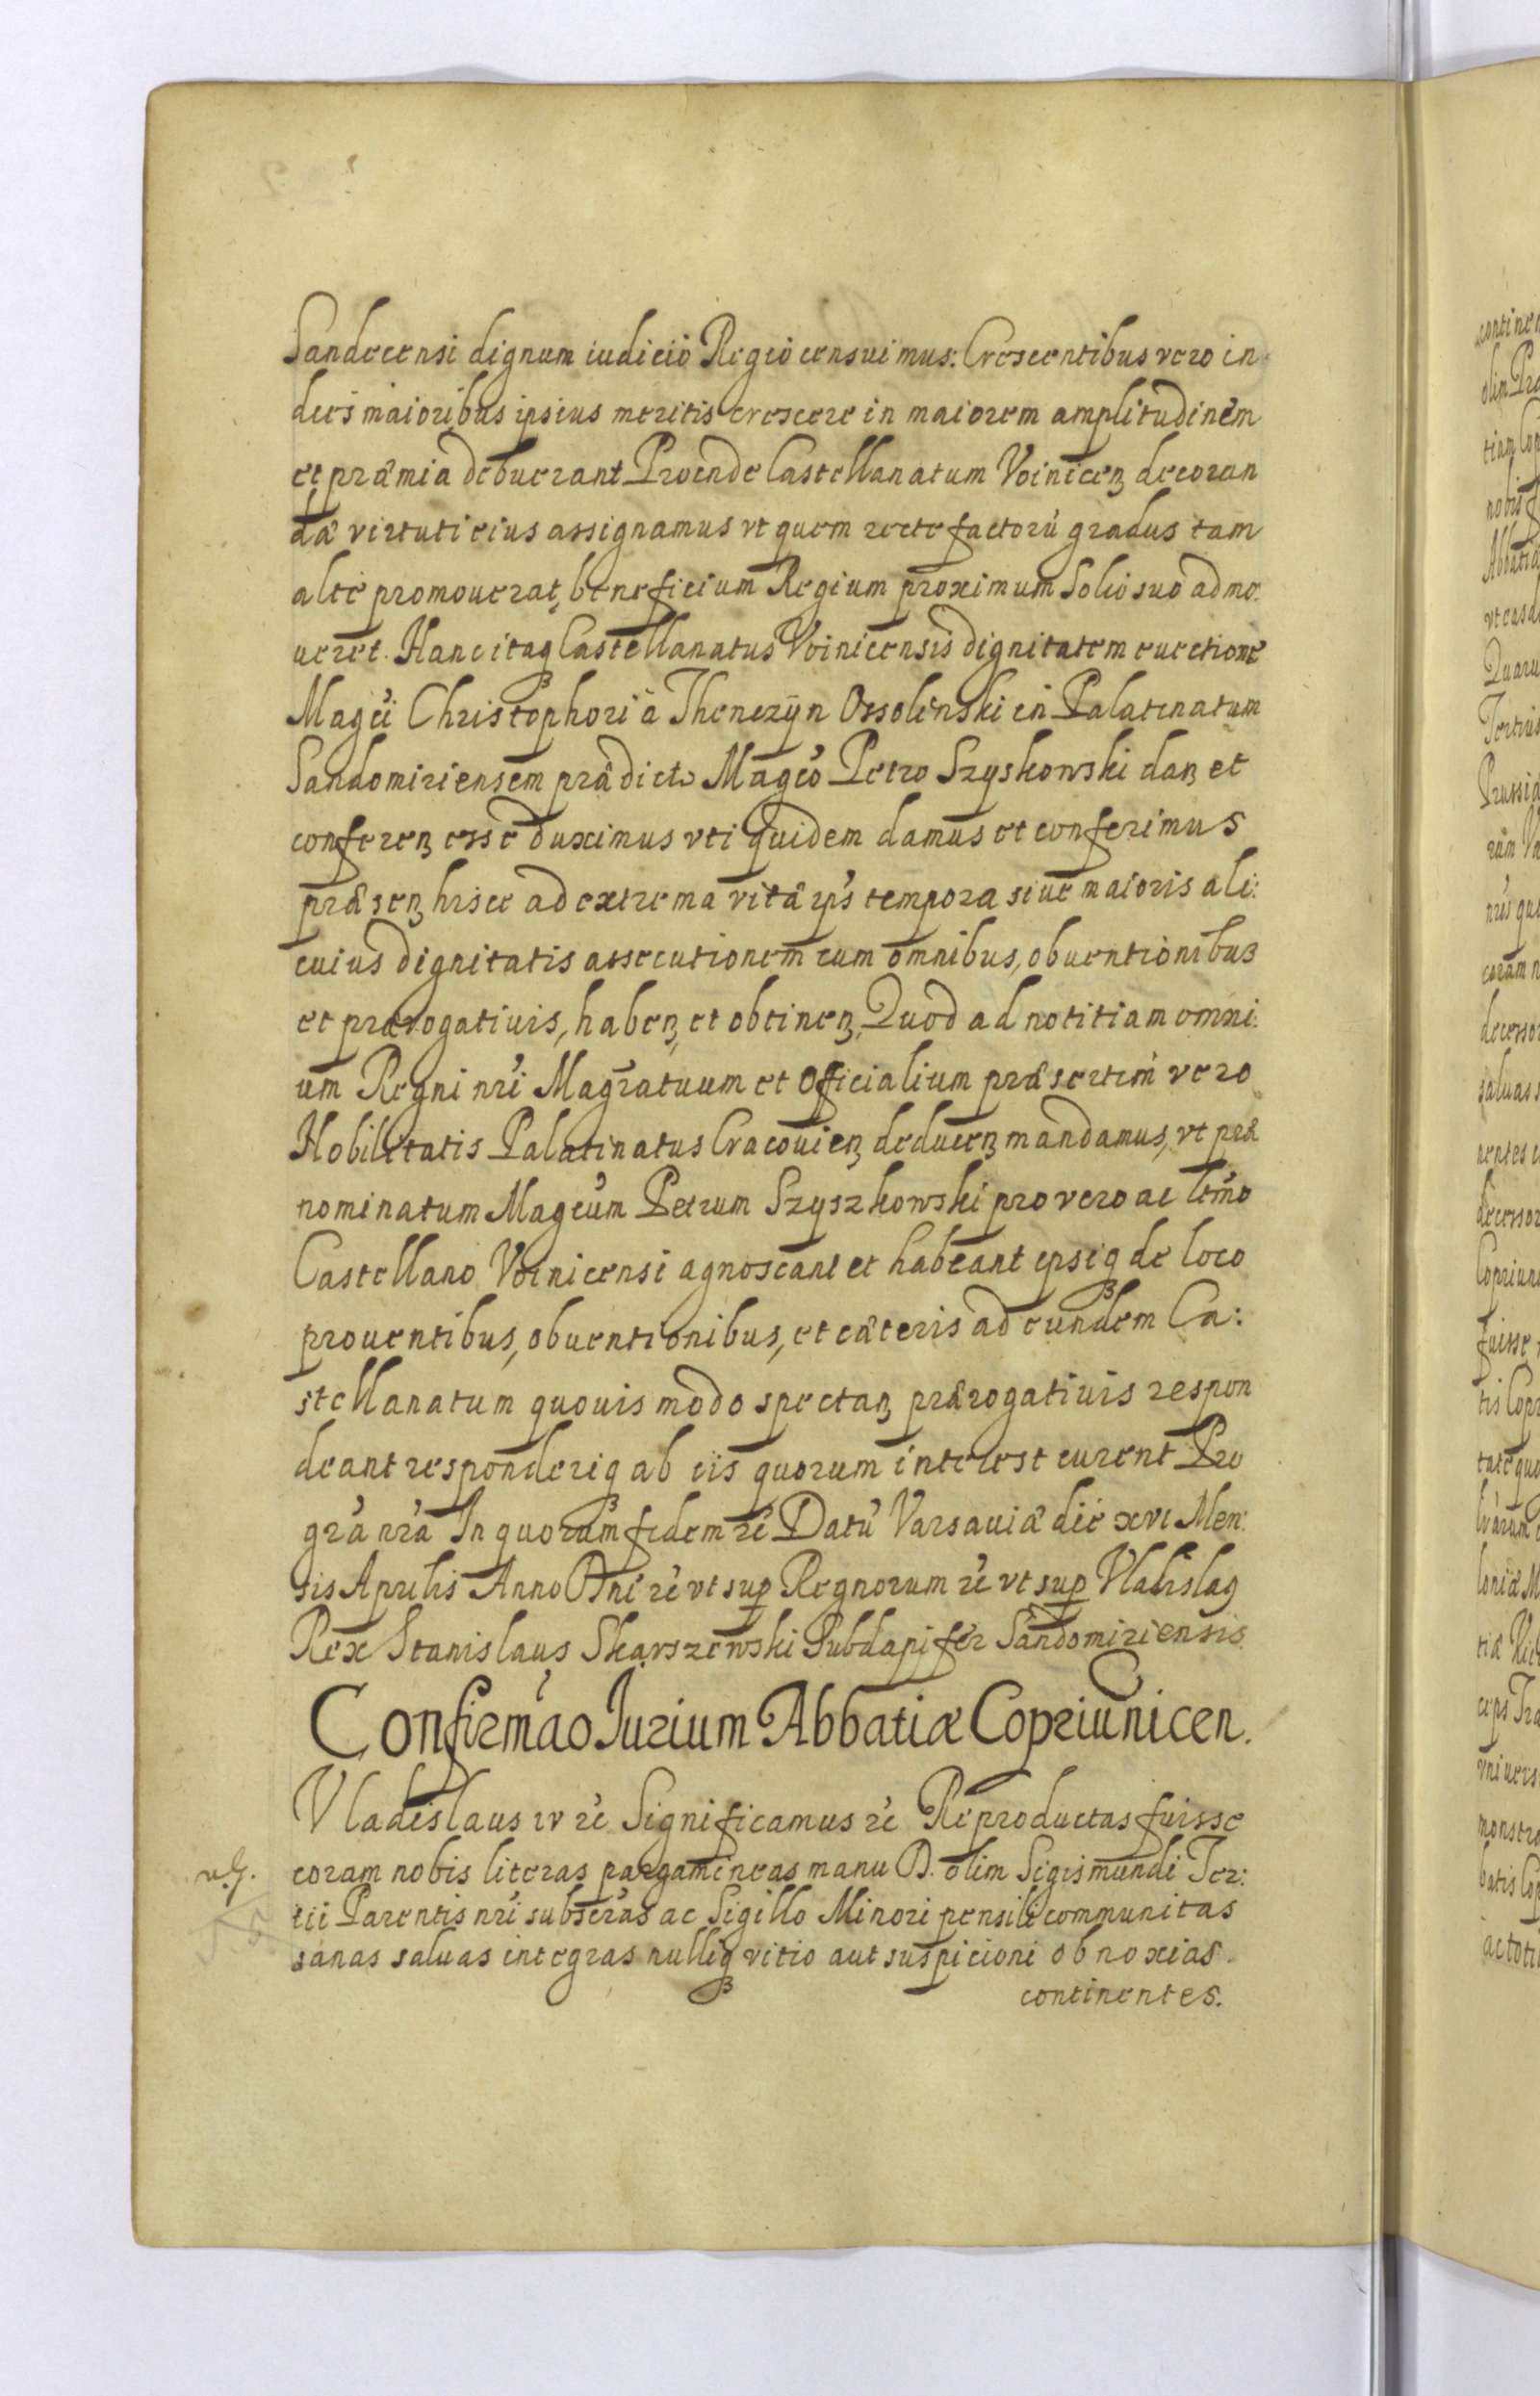 Sandecensi dignum iudicio Regio censuimus: Crescentibus vero in
dies maioribus ipsius meritis crescere in maiorem amplitudinem
et præmia debuerant Proinde Castellanatum Voinicen̄ decoran
dæ virtuti eius assignamus vt quem recte factorū gradus tam
alte promouerat, beneficium Regium proximum Solio suo admo:
ueret. Hanc itaqꝫ Castellanatus Voinicensis dignitatem euectione
Magci Christophori à Thenczÿn Ossolenski in Palatinatum
Sandomiriensem prædicto Magco Petro Szyskowski danꝫ et
conferenꝫ esse duximus vti quidem damus et conferimus
præsenꝫ hisce ad extrema vitæ ips tempora siue maioris ali:
cuius dignitatis assecutionem cum omnibus, obuentionibus
et prærogatiuis, habenꝫ, et obtinenꝫ, Quod ad notitiam omni:
um Regni nri Magratuum et Officialium præsertim vero
Nobilitatis Palatinatus Cracouienꝫ deducenꝫ mandamus, vt præ
nominatum Magcum Petrum Szyszkowski pro vero ac ltmo
Castellano Voinicensi agnoscant et habeant ipsiqꝫ de loco
prouentibus, obuentionibus, et cæteris ad eundem Ca:
stellanatum quouis modo spectanꝫ prærogatiuis respon
deant responderiqꝫ ab iis quorum interest curent Pro
gra nra In quorum fidem rc Datū Varsauiæ die xvi Men:
sis Aprilis Anno Dni rc vt sup Regnorum rc vt sup Vladislaꝯ
Rex Stanislaus Skarszewski Subdapifer Sandomiriensis
Confirmao Iurium Abbatiæ Copriunicen.
Vladislaus iv rc Significamus rc Reproductas fuisse
coram nobis literas pargamineas manu D. olim Sigismundi Ter:
tii Parentis nri subscras ac Sigillo Minori pensili communitas
sanas saluas integras nulliqꝫ vitio aut suspicioni obnoxias
continentes.